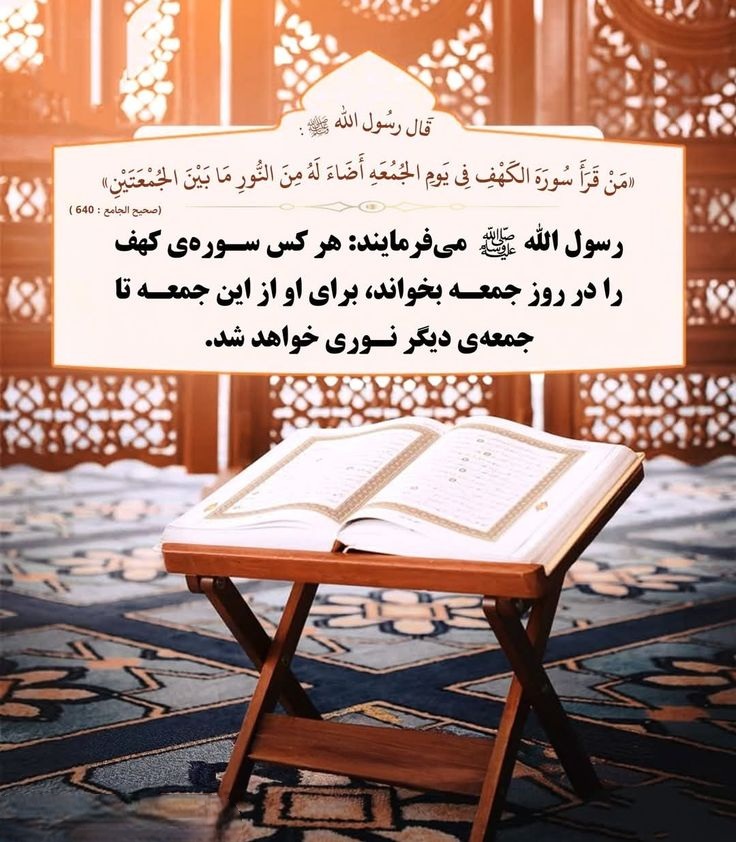 قَال رسُول الله ﷺ :
«مَنْ قَرَأَ سُورَةَ الكَهْفِ فِي يَومِ الجُمُعَهِ أَضَاءَ لَهُ مِنَ النُّورِ مَا بَيْنَ الجُمْعَتَيْنِ»
(صحيح الجامع : 640 )
رسول الله ﷺ می‌فرمایند: هر کس ســوره‌ی کهف
را در روز جمعــه بخواند، برای او از این جمعــه تا
جمعه‌ی دیگر نــوری خواهد شد.